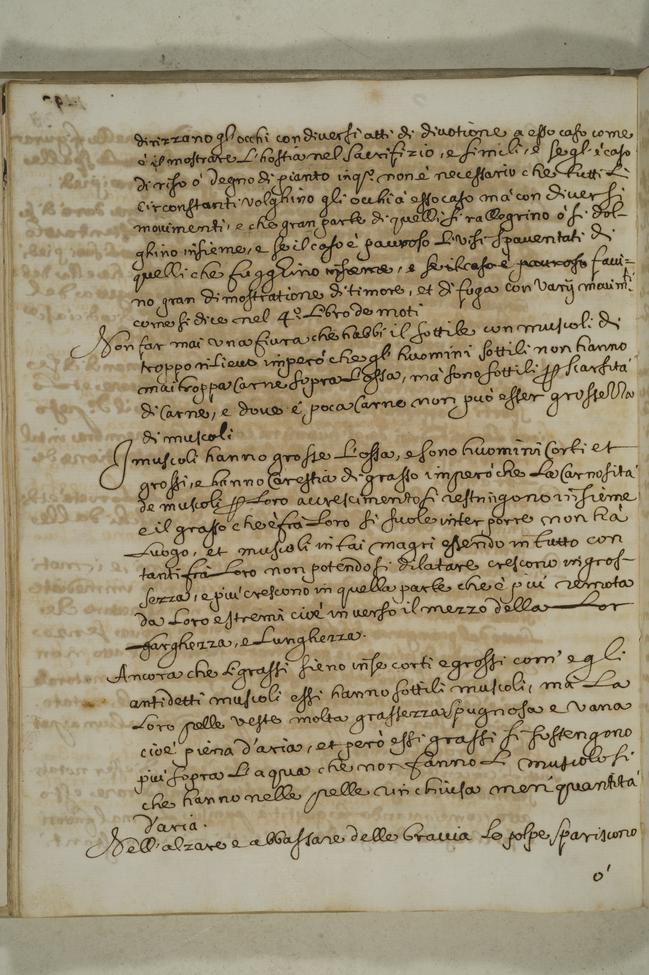 dirizzano gl'occhi con diversi atti di divotione a esso caso come
ò il mostrare L'hostia nel sacrifizio, e simili, ò se gl'è caso
di riso ò degno di pianto in q.º non è necessario che tutti Li
Circonstanti volghino gli occhi à esso caso mà con diversi
movimenti, e che gran parte di quelli si rallegrino ò si dol-
ghino insieme, e se il caso è pauroso Li visi spaventati di
quelli che fugghino insieme, e se il caso è pauroso facci-
no gran dimostratione di timore, et di fuga con varij movim.ti
come si dice nel 4.º Libro de moti
Non far mai una figura che habbi il sottile con muscoli di
troppo rilievo imperò che gli huomini sottili non hanno
mai troppa Carne sopra L'ossa, mà sono sottili p scarsità
di Carne, e dove è poca Carne non può esser grossezza
di muscoli
I muscoli hanno grosse L'ossa, e sono huomini Corti et
grossi, e hanno Carestia di grasso imperò che La Carnosità
de muscoli p Loro accrescimento si restringono insieme
e il grasso che è frà Loro si suole interporre non hà
Luogo, et muscoli in tai magri essendo in tutto con
tanti frà Loro non potendosi dilatare crescono in gros-
sezza, e più crescono in quella parte che è più remota
da Loro estremi cioè inverso il mezzo della Lor
Larghezza, e Lunghezza.
Ancora che Li grassi sieno in se corti e grossi com'e gli
antidetti muscoli essi hanno sottili muscoli, mà La
Loro pelle veste molta grassezza spugnosa e vana
cioè piena d'aria, et però essi grassi si sostengono
più sopra L'aqua che non fanno Li muscolosi
che hanno nelle pelle rinchiusa men quantità
d'aria.
Nell'alzare e abbassare delle braccia Le polpe spariscono
ò